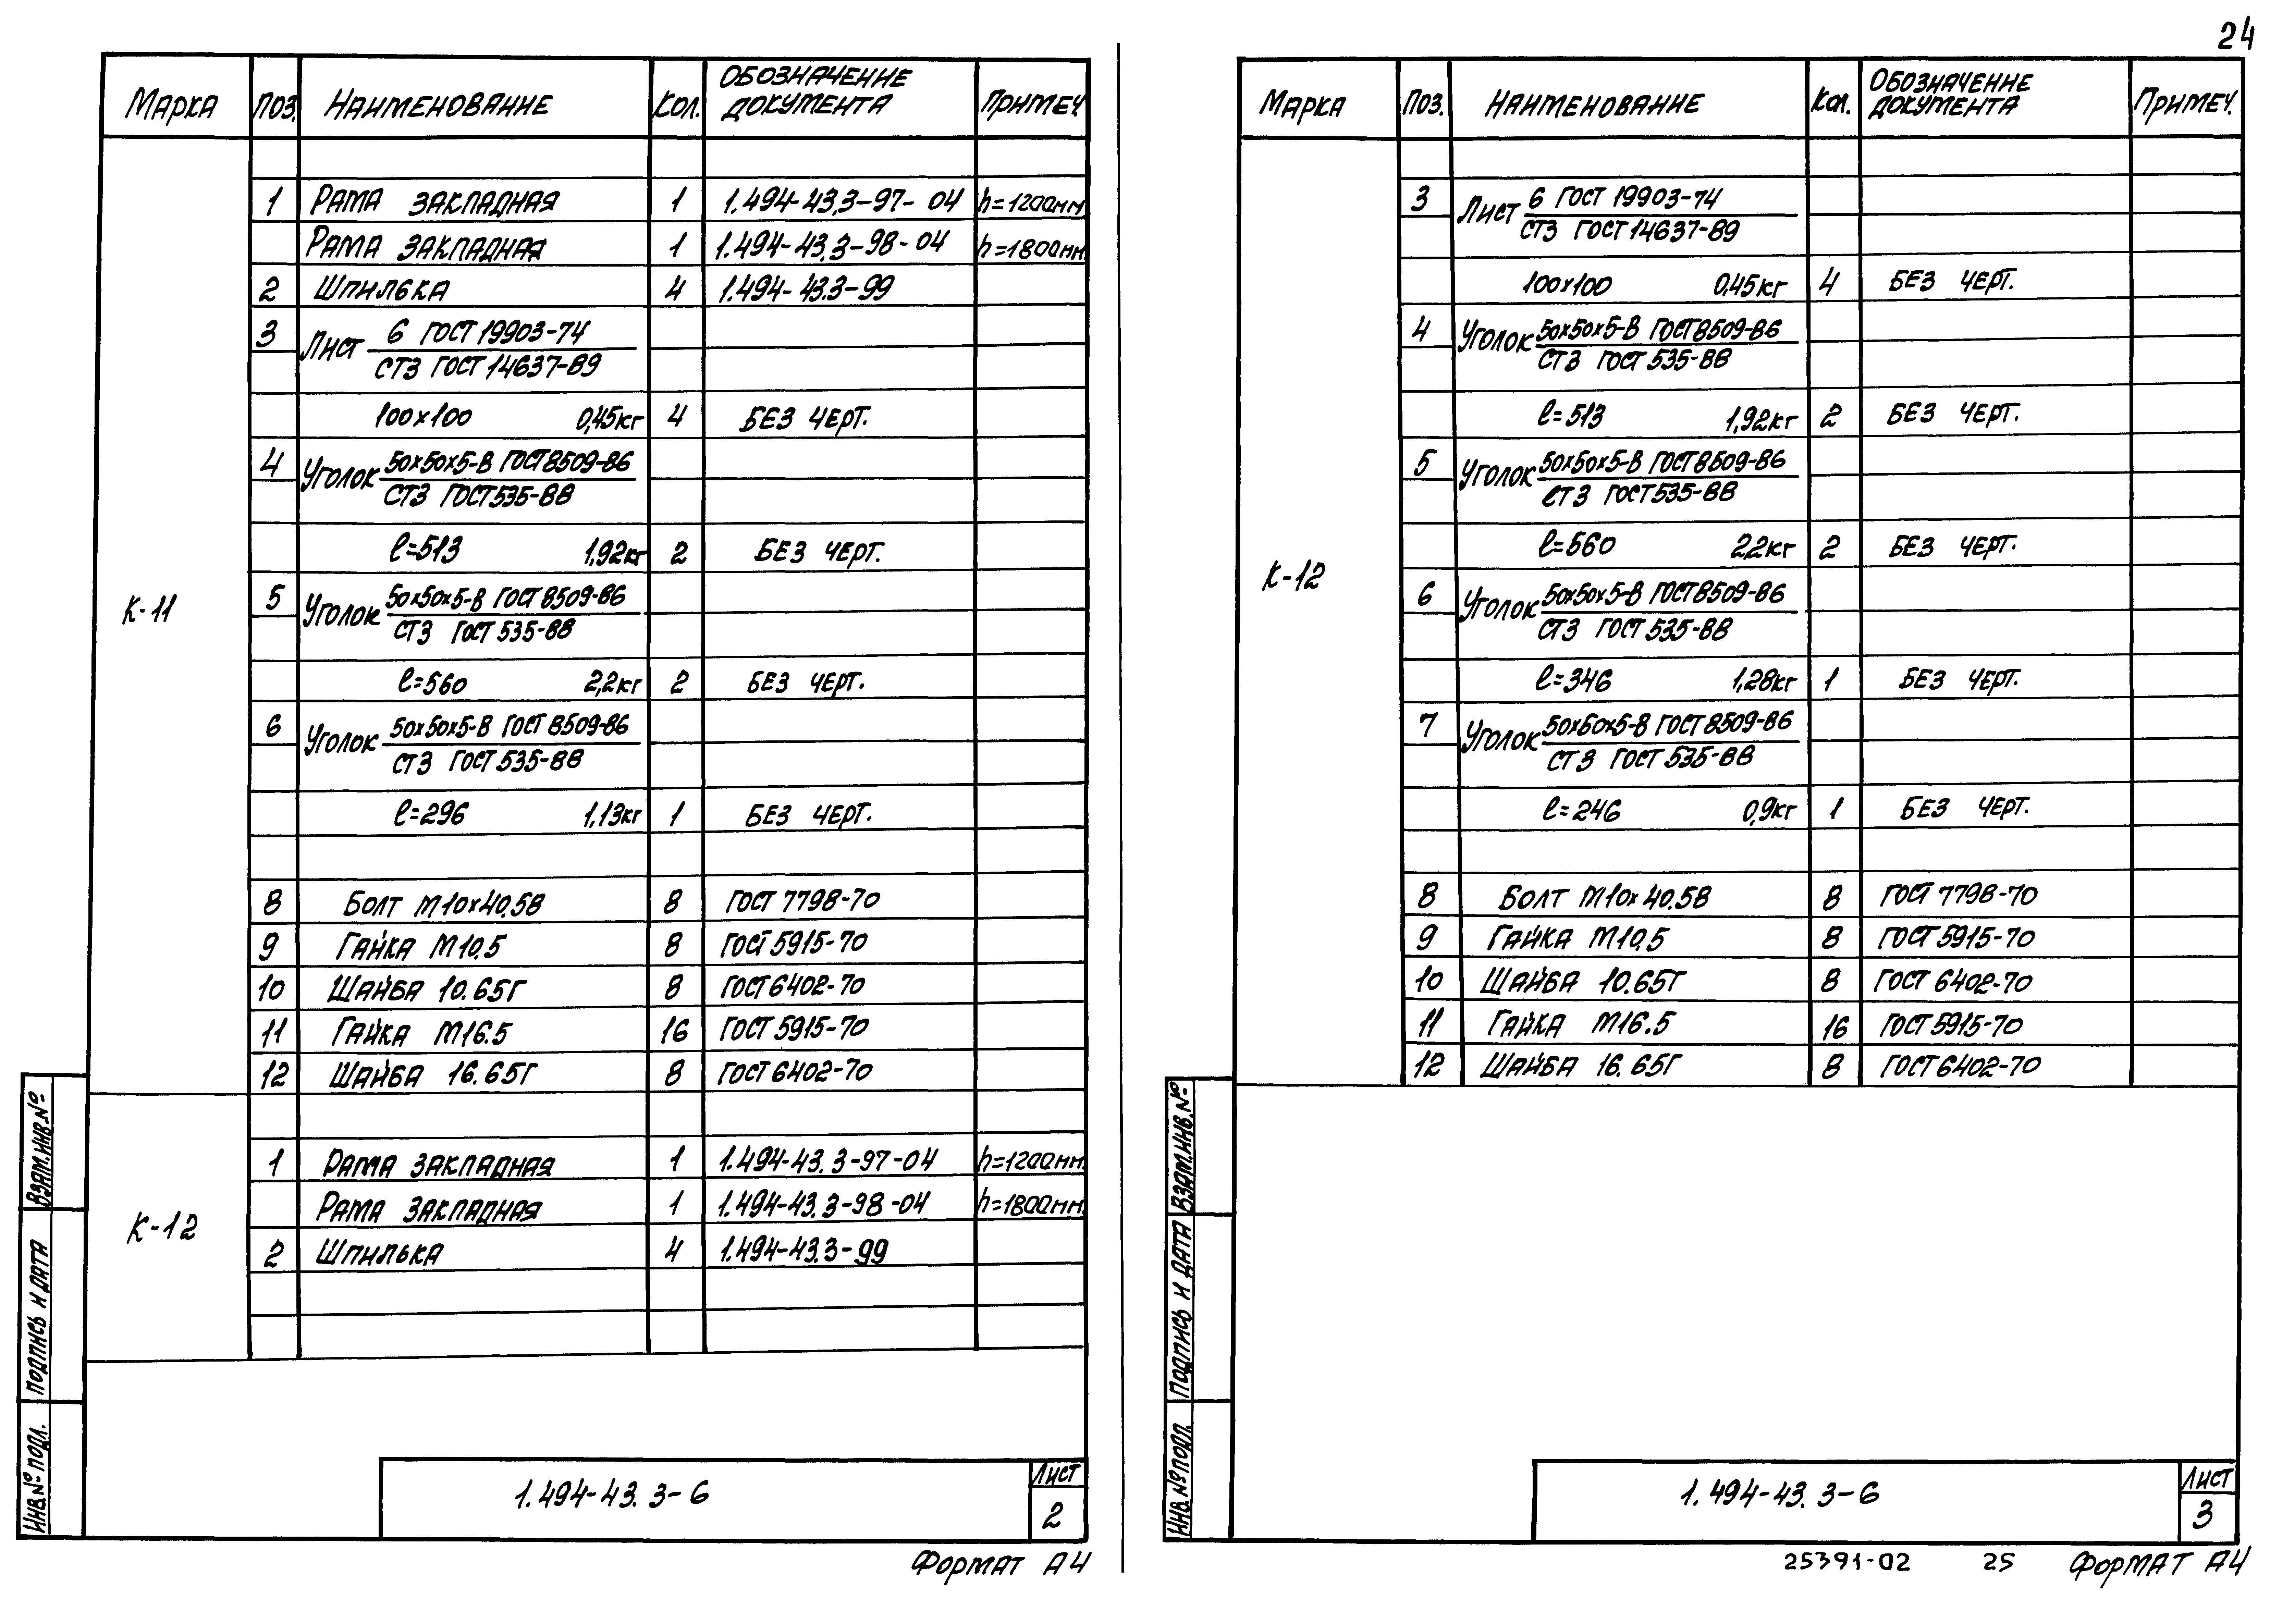 24
Марка Поз. Наименование Кол. Обозначение документа Примеч.
К-11
1 Рама закладная 1 1.494-43.3-97-04 h=1200мм
Рама закладная 1 1.494-43.3-98-04 h=1800мм.
2 Шпилька 4 1.494-43.3-99
3 Лист 6 ГОСТ 19903-74
Ст3 ГОСТ 14637-89
100х100 0,45кг 4 Без черт.
4 Уголок 50х50х5-В ГОСТ 8509-86
Ст3 ГОСТ 535-88
ℓ=513 1,92кг 2 Без черт.
5 Уголок 50х50х5-В ГОСТ 8509-86
Ст3 ГОСТ 535-88
ℓ=560 2,2кг 2 Без черт.
6 Уголок 50х50х5-В ГОСТ 8509-86
Ст3 ГОСТ 535-88
ℓ=296 1,13кг 1 Без черт.
8 Болт М10х40.58 8 ГОСТ 7798-70
9 Гайка М10.5 8 ГОСТ 5915-70
10 Шайба 10.65Г 8 ГОСТ 6402-70
11 Гайка М16.5 16 ГОСТ 5915-70
12 Шайба 16.65Г 8 ГОСТ 6402-70
К-12
1 Рама закладная 1 1.494-43.3-97-04 h=1200мм.
Рама закладная 1 1.494-43.3-98-04 h=1800мм.
2 Шпилька 4 1.494-43.3-99
Взам.инв.№
Подпись и дата
Инв.№ подл.
1.494-43.3-6
Лист
2
Формат А4
Марка Поз. Наименование Кол. Обозначение документа Примеч.
К-12
3 Лист 6 ГОСТ 19903-74
Ст3 ГОСТ 14637-89
100х100 0,45кг 4 Без черт.
4 Уголок 50х50х5-В ГОСТ 8509-86
Ст3 ГОСТ 535-88
ℓ=513 1,92кг 2 Без черт.
5 Уголок 50х50х5-В ГОСТ 8509-86
Ст3 ГОСТ 535-88
ℓ=560 2,2кг 2 Без черт.
6 Уголок 50х50х5-В ГОСТ 8509-86
Ст3 ГОСТ 535-88
ℓ=346 1,28кг 1 Без черт.
7 Уголок 50х50х5-В ГОСТ 8509-86
Ст3 ГОСТ 535-88
ℓ=246 0,9кг 1 Без черт.
8 Болт М10х40.58 8 ГОСТ 7798-70
9 Гайка М10.5 8 ГОСТ 5915-70
10 Шайба 10.65Г 8 ГОСТ 6402-70
11 Гайка М16.5 16 ГОСТ 5915-70
12 Шайба 16.65Г 8 ГОСТ 6402-70
Взам.инв.№
Подпись и дата
Инв.№ подл.
1.494-43.3-6
Лист
3
25391-02 25 Формат А4